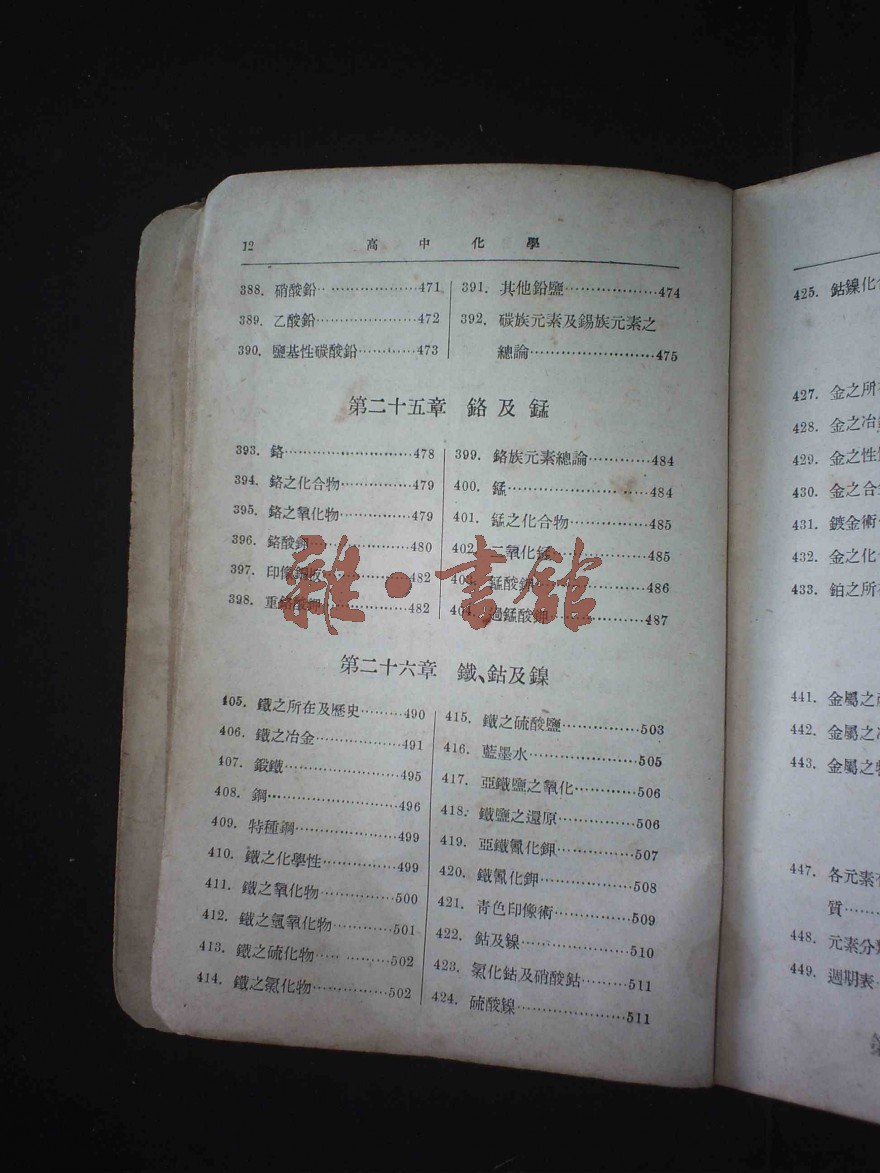 12 高中化學
388. 硝酸鉛 471
389. 乙酸鉛 472
390. 鹽基性碳酸鉛 473
391. 其他鉛鹽 474
392. 碳族元素及錫族元素之
總論 475
第二十五章 鉻及錳
393. 鉻 478
394. 鉻之化合物 479
395. 鉻之氧化物 479
396. 鉻酸鉀 480
397. 印像銅版 482
398. 重鉻酸鉀 482
399. 鉻族元素總論 484
400. 錳 484
401. 錳之化合物 485
402. 二氧化錳 485
403. 錳酸鉀 486
404. 過錳酸鉀 487
第二十六章 鐵、鈷及鎳
405. 鐵之所在及歷史 490
406. 鐵之冶金 491
407. 鍛鐵 495
408. 鋼 496
409. 特種鋼 499
410. 鐵之化學性 499
411. 鐵之氧化物 500
412. 鐵之氫氧化物 501
413. 鐵之硫化物 502
414. 鐵之氯化物 502
415. 鐵之硫酸鹽 503
416. 藍墨水 505
417. 亞鐵鹽之氧化 506
418. 鐵鹽之還原 506
419. 亞鐵氰化鉀 507
420. 鐵氰化鉀 508
421. 青色印像術 509
422. 鈷及鎳 510
423. 氯化鈷及硝酸鈷 511
424. 硫酸鎳 511
425. 鈷鎳化合
427. 金之所在
428. 金之冶
429. 金之性
430. 金之合
431. 鍍金術
432. 金之化
433. 鉑之所在
441. 金屬之
442. 金屬之
443. 金屬之
447. 各元素
質
448. 元素分
449. 週期表
雜·書館